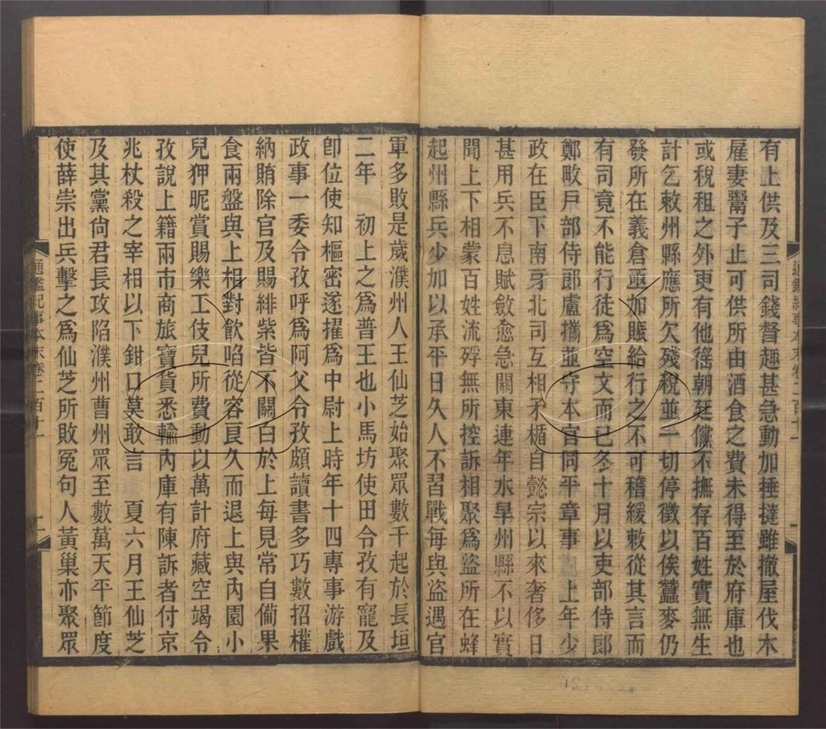 有上供及三司錢督趣甚急動加捶撻雖撤屋伐木
雇妻鬻子止可供所由酒食之費未得至於府庫也
或稅租之外更有他徭朝廷儻不撫存百姓實無生
計乞敕州縣應所欠殘稅並一切停徵以俟蠶麥仍
發所在義倉亟加賑給行之不可稽緩敕從其言而
有司竟不能行徒爲空文而已冬十月以吏部侍郎
鄭畋戸部侍郎盧攜並守本官同平章事 上年少
政在臣下南牙北司互相矛楯自懿宗以來奢侈日
甚用兵不息賦斂愈急關東連年水旱州縣不以實
聞上下相蒙百姓流殍無所控訴相聚爲盜所在蜂
起州縣兵少加以承平日久人不習戰每與盜遇官
通鑑紀事本末卷二百十一
軍多敗是歲濮州人王仙芝始聚眾數千起於長垣
二年 初上之爲普王也小馬坊使田令孜有寵及
卽位使知樞密遂擢爲中尉上時年十四專事游戲
政事一委令孜呼爲阿父令孜頗讀書多巧數招權
納賄除官及賜緋紫皆不關白於上每見常自備果
食兩盤與上相對飮啗從容良久而退上與內園小
兒狎昵賞賜樂工伎兒所費動以萬計府藏空竭令
孜說上籍兩市商旅寶貨悉輸內庫有陳訴者付京
兆杖殺之宰相以下鉗口莫敢言 夏六月王仙芝
及其黨尙君長攻陷濮州曹州眾至數萬天平節度
使薛崇出兵擊之爲仙芝所敗冤句人黃巢亦聚眾
通鑑紀事本末卷二百十一